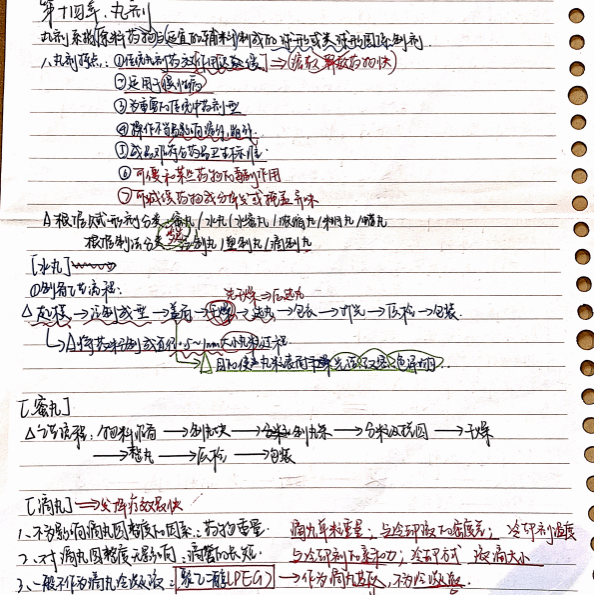 第十四章、丸剂
丸剂系指原料药物与适宜的辅料制成的球形或类球形固体制剂
1、丸剂特点:①传统丸剂药效作用迟缓 ⇒ 溶散、释放药物快
②适用于慢性病
③为重要的传统中药剂型
④操作不当易影响溶散
⑤成品难符合药品卫生标准
⑥可缓和某些药物的毒副作用
⑦可减缓药物成分挥发或掩盖异味
△根据赋形剂分类→蜜丸/水丸/水蜜丸/浓缩丸/糊丸/蜡丸
根据制法分类→泛制丸/塑制丸/滴制丸
[水丸]
①制备工艺流程:
先干燥→后选丸
△起模→泛制成型→盖面→干燥→选丸→包衣→打光→质检→包装
↳△将药粉制成直径0.5~1mm大小丸粒过程
↳△目的使丸粒表面 光洁 致密 色泽均匀
[蜜丸]
△工艺流程:物料准备→制丸块→制丸条→分粒及搓圆→干燥
→整丸→质检→包装
[滴丸]→发挥药效最快
1、不为影响滴丸圆整度的因素:药物重量 滴丸单粒重量;与冷却液的密度差;冷却剂温度
2、对滴丸圆整度无影响:滴管的长短 与冷却剂的亲和力;冷却方式 液滴大小
3、一般不作为滴丸冷凝液:聚乙二醇(PEG)→作为滴丸基质,不为冷凝液